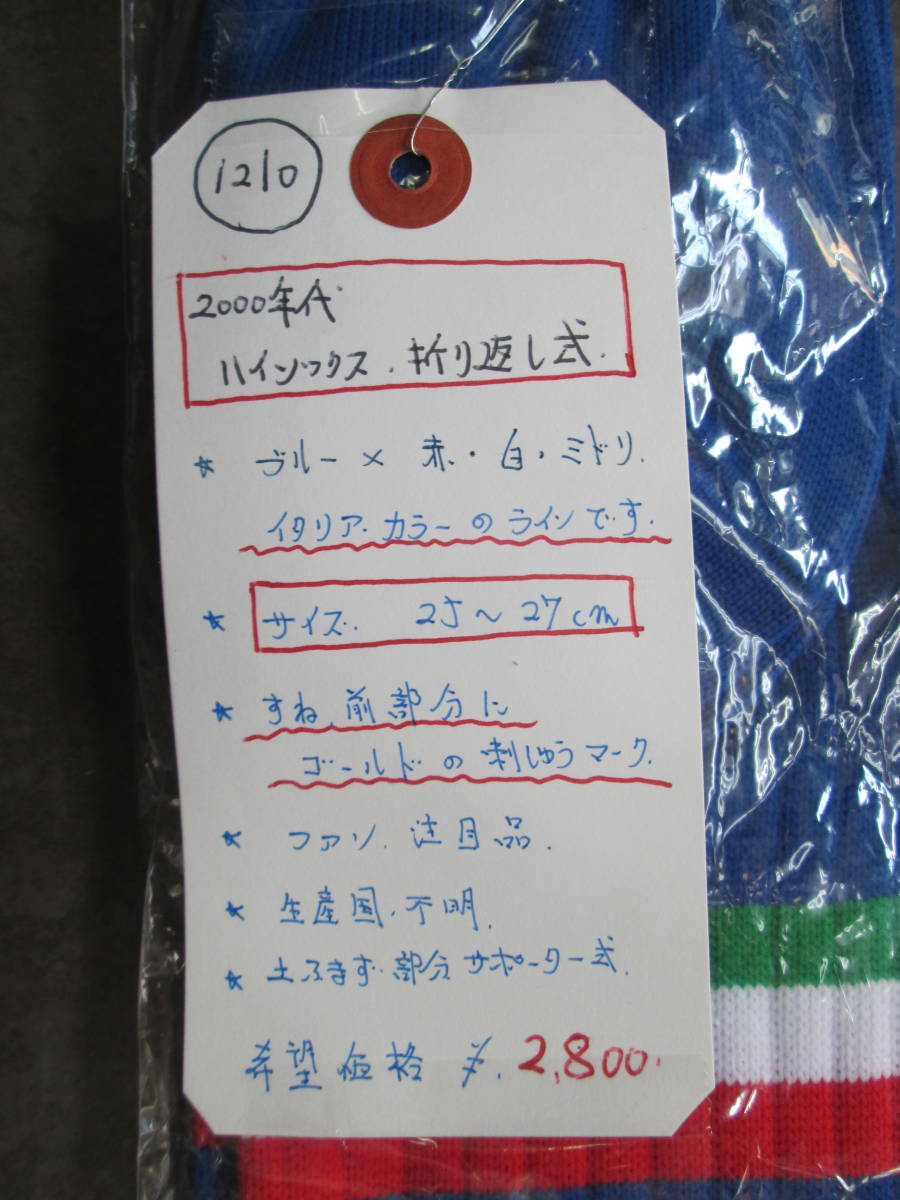 1210
2000年代
ハイソックス.折り返し式.
★ ブルー × 赤・白・ミドリ.
イタリア・カラーのラインです.
★ サイズ. 25～27cm
★ すね前部分に
ゴールドの刺しゅうマーク.
★ ファン.注目品.
★ 生産国.不明.
★ 土ふまず部分サポーター式.
希望価格 ¥.2,800.